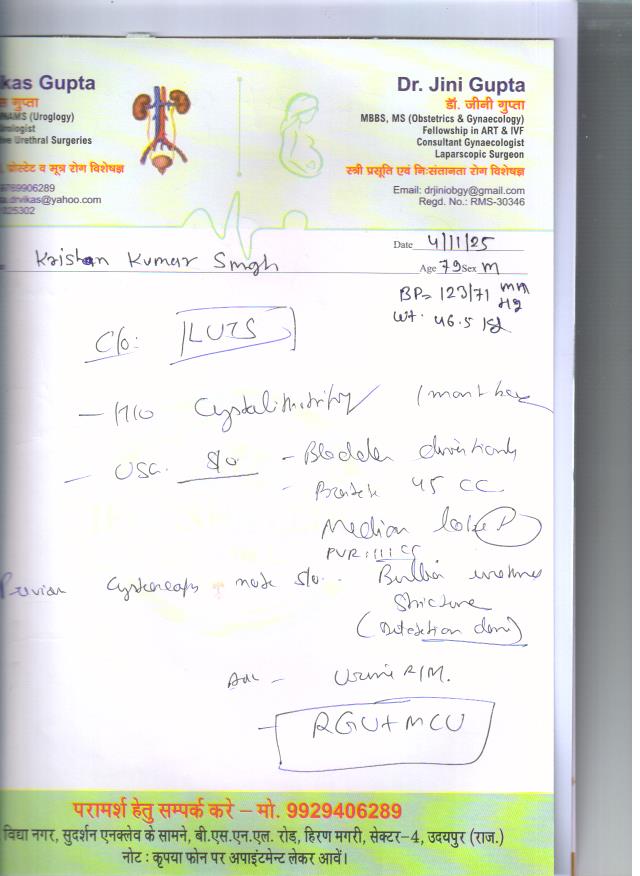 kas Gupta
गुप्ता
NAMS (Urology)
Urologist
ve Urethral Surgeries
प्रोस्टेट व मूत्र रोग विशेषज्ञ
9789906289
a.drvikas@yahoo.com
025302
Dr. Jini Gupta
डॉ. जीनी गुप्ता
MBBS, MS (Obstetrics & Gynaecology)
Fellowship in ART & IVF
Consultant Gynaecologist
Laparscopic Surgeon
स्त्री प्रसूति एवं निःसंतानता रोग विशेषज्ञ
Email: drjiniobgy@gmail.com
Regd. No.: RMS-30346
Date 4/11/25
Krishan Kumar Singh
Age 79 Sex M
BP= 123/71 mm Hg
Wt. 46.5 kg
C/o: LUTS
- H/o 1 month
- USG. S/o - Bladder
- 45 CC
Median lobe P
PVR: 111 CC
note S/o. urethral
Stricture
Adv - Urine R/M.
- RGU + MCU
परामर्श हेतु सम्पर्क करे – मो. 9929406289
विद्या नगर, सुदर्शन एनक्लेव के सामने, बी.एस.एन.एल. रोड़, हिरण मगरी, सेक्टर-4, उदयपुर (राज.)
नोट : कृपया फोन पर अपाइंटमेन्ट लेकर आवें।